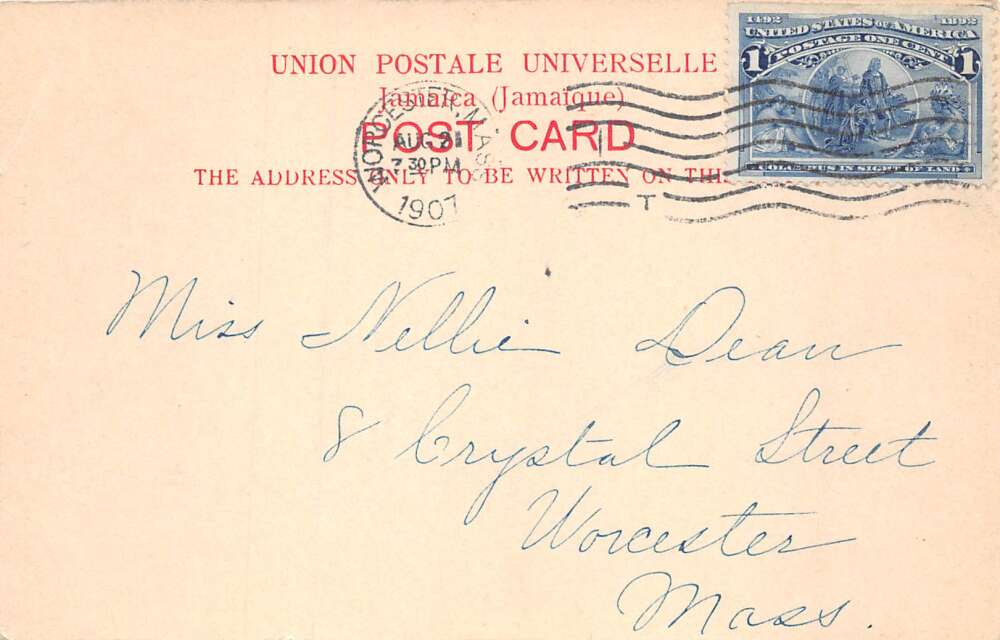 1492 1892
UNITED STATES OF AMERICA
POSTAGE ONE CENT
1 1
COLUMBUS IN SIGHT OF LAND
UNION POSTALE UNIVERSELLE
Jamaica (Jamaïque)
POST CARD
THE ADDRESS ONLY TO BE WRITTEN ON THIS
WORCESTER, MASS
AUG 21
7 30 PM
1907
T
Miss Nellie Dean
8 Crystal Street
Worcester
Mass.